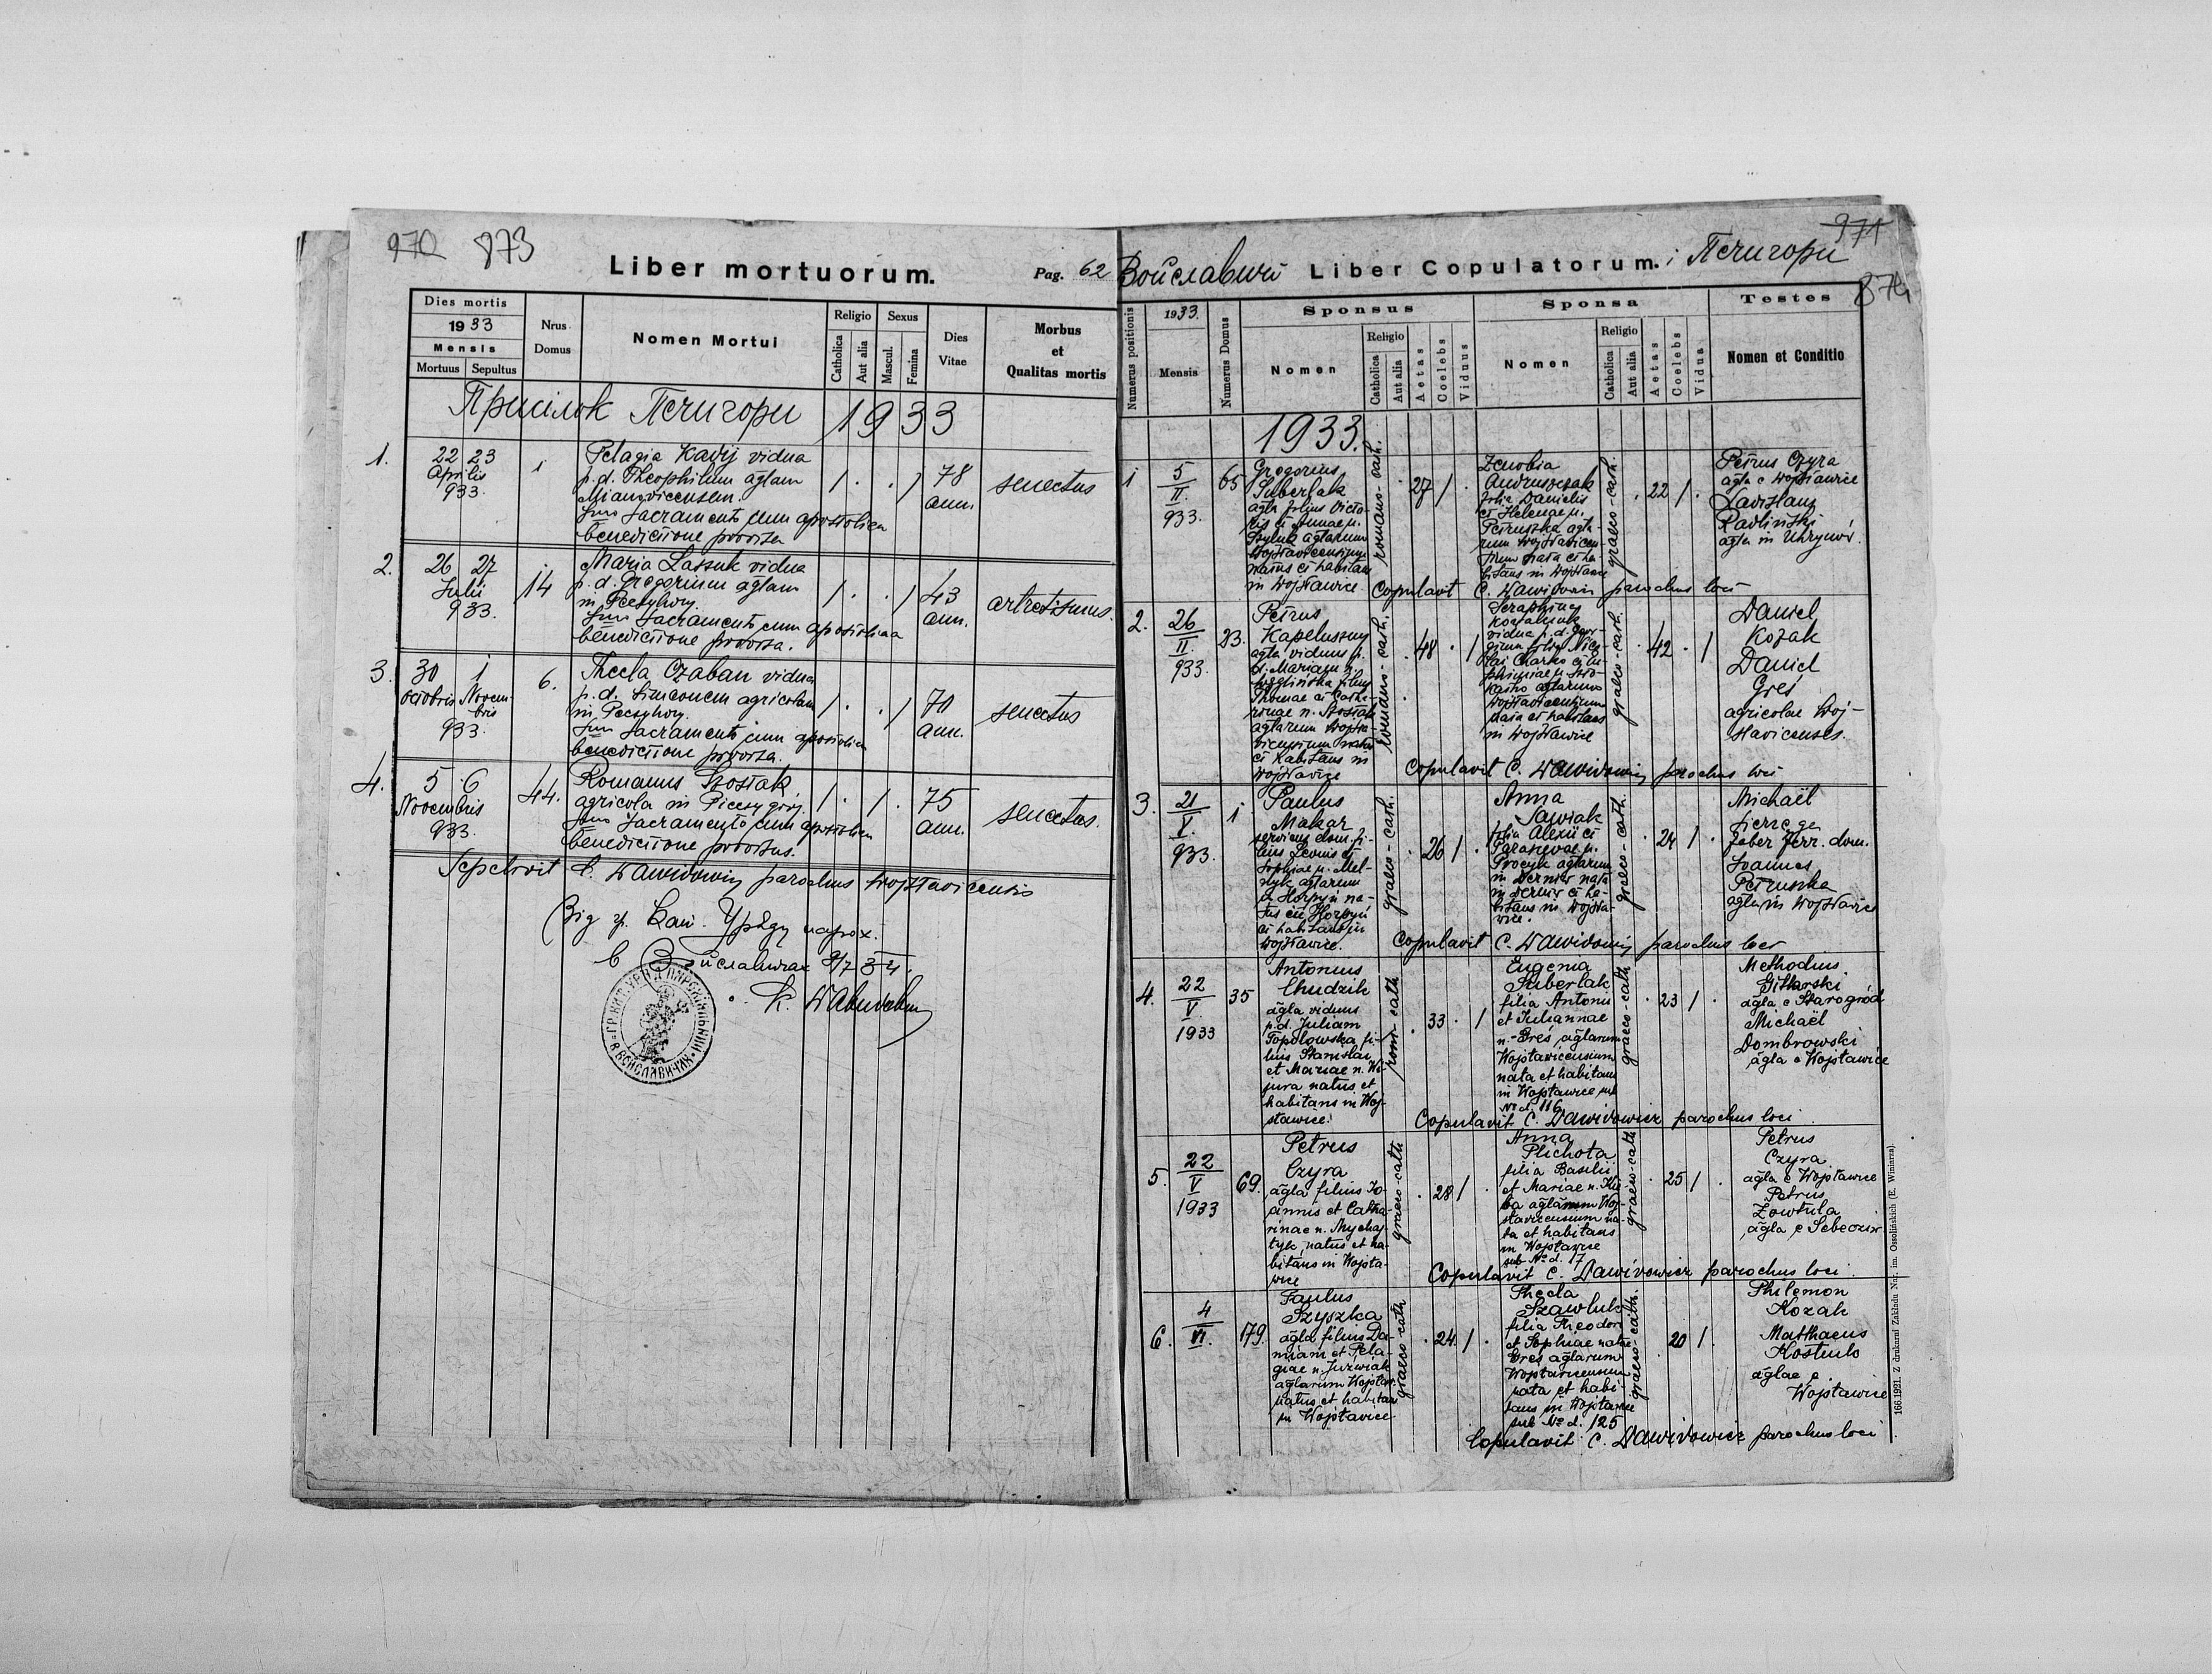 970 873
Liber mortuorum. Pag. 62
Dies mortis
1933
Mensis
Mortuus Sepultus
Nrus Domus
Nomen Mortui
Religio
Catholica
Aut alia
Sexus
Mascul.
Femina
Dies Vitae
Morbus
et
Qualitas mortis
Присілок Печигори 1933
1. 22 23 Aprilis 933. 1
Pelagia Kadij vidua
p. d. Theophilum agłam
sacramento cum apostolica
benedictione provisa
1 . . 1 78 ann. senectus
2. 26 27 Julii 933. 14
Maria Lassuk vidua
p. d. Gregorium agłam
in Peczyhory.
sacramento cum apostolica
benedictione provisa.
1 . . 1 43 ann.
3. 30 1 Octobris Novembris 933. 6.
Thecla Czaban vidua
p. d. Simeonem agricolam
in Peczyhory.
sacramento cum apostolica
benedictione provisa.
1 . . 1 70 ann. senectus
4. 5 6 Novembris 933. 44.
Romanus Szostak
agricola in
sacramento cum apostolica
benedictione provisus.
1 . 1 . 75 ann. senectus.
Sepelivit C. Dawidowicz parochus Wojsławicensis
Від гр. кат. Уряду парох.
в Войславичах 9/7 34.
К. Давидович
ГР. КАТ. УРЯД ПАРОХІЯЛЬНИЙ В ВОЙСЛАВИЧАХ
971
874
Войславичі Liber Copulatorum. і Печигори
Numerus positionis
1933.
Mensis
Numerus Domus
Sponsus
Nomen
Religio
Catholica
Aut alia
Aetas
Coelebs
Viduus
Sponsa
Nomen
Religio
Catholica
Aut alia
Aetas
Coelebs
Vidua
Testes
Nomen et Conditio
1933.
1 5/II. 933. 65
Gregorius
Suberlak
agła filius Victo-
ris et Annae n.
agłarum
Wojsławicensium
natus et habitans
in Wojsławice
romano-cath.
. 27 1 .
Zenobia
Andruszczak
filia Danielis
et Helenae n.
Petruszka agła-
rum Wojsławicen-
sium nata et ha-
bitans in Wojsławice
graeco-cath.
. 22 1 .
Petrus Czyra
agła e Wojsławice
Ladislaus
Radliński
agła in Uhrynów.
Copulavit C. Dawidowicz parochus loci
2. 26/II. 933. 23.
Petrus
Kapeluszny
agła viduus p.
d. Mariam n.
filius
Thomae et Catha-
rinae n. Szostak
agłarum Wojsła-
vicensium natus
et habitans in
Wojsławice
romano-cath.
. 48 . 1
vidua p. d.
filia Nico-
lai
agłarum
Wojsławicensium
nata et habitans
in Wojsławice
graeco-cath.
. 42 . 1
Daniel
Kozak
Daniel
Greś
agricolae Woj-
slavicenses.
Copulavit C. Dawidowicz parochus loci
3. 21/V. 933. 1
Paulus
Makar
servicus dom. fi-
lius Leonis et
Sophiae n. Mel-
nyk agłarum
in Horpyń na-
tus in Horpyń
et habitans in
Wojsławice.
graeco-cath.
. 26 1 .
Anna
Sawiak
filia Alexii et
Parascevae n.
Procyk agłarum
in Derniw nata
in Derniw et ha-
bitans in Wojsła-
wice.
graeco-cath.
. 24 1 .
Michaël
faber ferr. dom.
Joannes
Petruszka
agła in Wojsławice
Copulavit C. Dawidowicz parochus loci
4. 22/V. 1933 35
Antonius
Chudzik
agła viduus
p. d. Juliam
Topolowska fi-
lius Stanislai
et Mariae n. Wó-
jura natus et
habitans in Woj-
sławice.
rom-cath
. 33 . 1
Eugenia
Suberlak
filia Antonii
et Juliannae
n. Greś, agłarum
Wojsławicensium
nata et habitans
in Wojsławice sub
No d. 116
graeco-cath
. 23 1 .
Methodius
agła e Starogród
Michaël
Dombrowski
agła e Wojsławice
Copulavit C. Dawidowicz parochus loci.
5. 22/V 1933 69.
Petrus
Czyra
agła filius Jo-
annis et Catha-
rinae n. Mychaj-
tyk, natus et ha-
bitans in Wojsła-
wice
graeco-cath
. 28 1 .
Anna
Plichota
filia Basilii
et Mariae n.
agłarum Woj-
sławicensium na-
ta et habitans
in Wojsławice
sub No d. 17
graeco-cath
. 25 1 .
Petrus
Czyra
agła e Wojsławice
Petrus
Żowtula
agła e Sebeczów
Copulavit C. Dawidowicz parochus loci.
6. 4/VI. 179.
Paulus
Szyszka
agła filius Da-
miani et Pela-
giae n. Jurwiak
agłarum Wojsław.
natus et habitans
in Wojsławice
graeco-cath
. 24 1 .
Thecla
Szawluk
filia Theodori
et Sophiae natae
Greś agłarum
Wojsławicensium
nata et habi-
tans in Wojsławice
sub No d. 125
graeco-cath.
20 1 .
Philemon
Kozak
Matthaeus
Kostiuk
agłae e
Wojsławice
Copulavit C. Dawidowicz parochus loci
166.1921. Z drukarni Zakładu Nar. im. Ossolińskich (E. Winiarza)